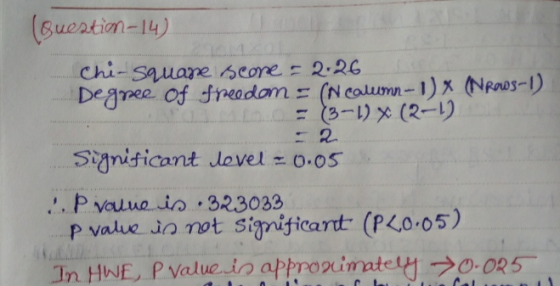 (Question-14)
Chi-square score = 2.26
Degree of freedom = (Ncalumn-1) x (NRows-1)
= (3-1) x (2-1)
= 2
Significant level = 0.05
∴ P value is .323033
P value is not significant (P<0.05)
In HWE, P value is approximately → 0.025